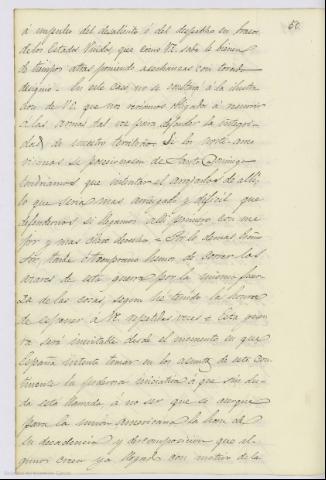 50
á impulso del desaliento ó del despecho en brazos
de los Estados Unidos, que como V.E. sabe le vienen
de tiempo atras poniendo asechanzas con torcido
designio. En este caso no se ocultará á la ilustra
cion de V.E. que nos veriamos obligados á recurrir
á las armas tal vez para defender la integri-
dad de nuestro territorio. Si los norte-ame
ricanos se posesionasen de Santo Domingo
tendriamos que intentar el arrojarlos de allí,
lo que seria mas arriesgado y dificil que
defendernos si llegamos allí primero con me
jor y mas claro derecho. = Por lo demas, Exmo
Sor, tarde ó temprano hemos de correr los
azares de esta guerra por la misma fuer
za de las cosas, segun he tenido la honra
de esponer á V.E. repetidas veces = Esta guer
ra será inevitable desde el momento en que
España intente tomar en los asuntos de este con
tinente la poderosa iniciativa á que sin du-
da está llamada, á no ser que se acerque
para la union americana la hora de
su decadencia y descomposicion que al-
gunos creen ya llegada con motivo de la